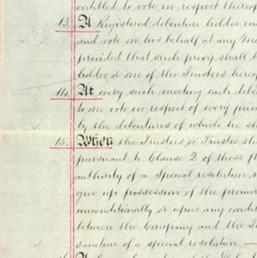 entitled to vote in respect thereof
13. A Registered debenture holder
and vote on his behalf at any
provided that such proxy shall
holder or one of the Trustees hereof
14. At every such meeting each
to one vote in respect of every
by the debentures of which he
15. When the Trustees or Trustee
pursuant to Clause 2 of these
authority of a Special resolution
give up possession of the
unconditionally or upon any
between the Company and the
sanction of a special resolution